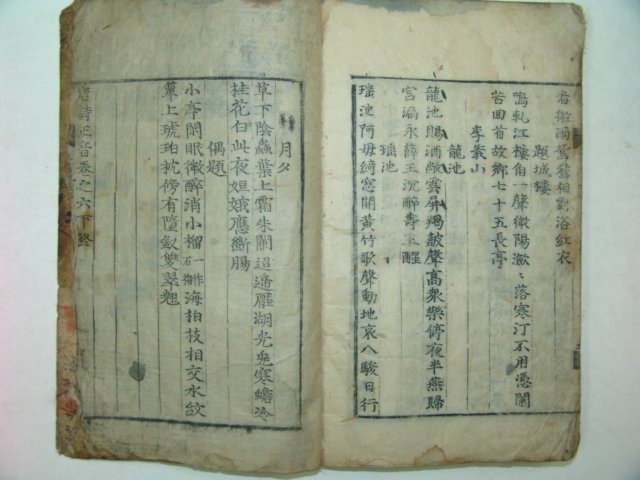 看微雨鴛鴦相對浴紅衣
題城樓
鳴軋江樓角一聲微陽瀲〻落寒汀不用憑闌
苦回首故鄉七十五長亭
李義山
龍池
龍池賜酒敞雲屏羯皷聲高衆樂停夜半燕歸
宮漏永薛王沉醉壽王醒
瑤池
瑤池阿母綺窓開黃竹歌聲動地哀八駿日行
月夕
草下陰蟲葉上霜朱闌迢遞壓湖光兎寒蟾冷
桂花白此夜姮娥應斷腸
偶題
小亭閑眠微醉消小榴一作石榴海柏枝相交水紋
簟上琥珀枕傍有墮釵雙翠翹
唐詩正音卷之六下終